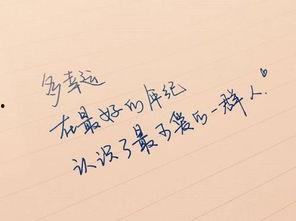 多幸运
在最好的年纪
认识了最可爱的一群人.